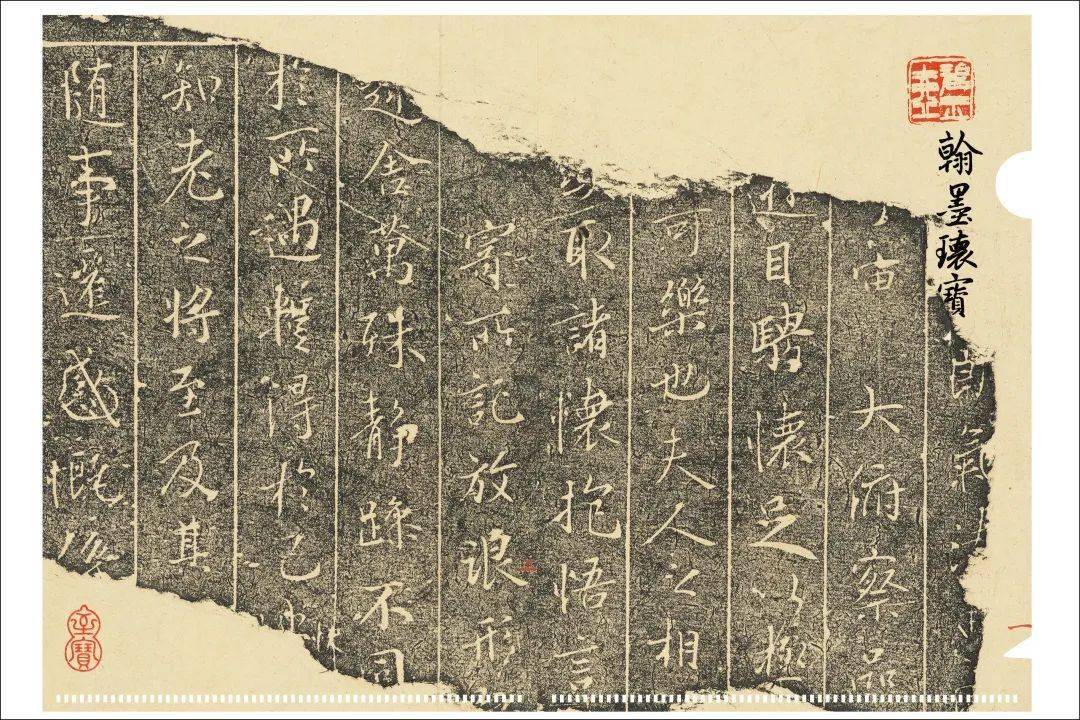 翰墨瓌寶
朗氣清
宙 大俯察品
遊目騁懷足以極
可樂也夫人之相
取諸懷抱悟言
寄所託放浪形
舍萬殊静躁不同
於所遇蹔得於己快
知老之將至及其
隨事遷感慨係